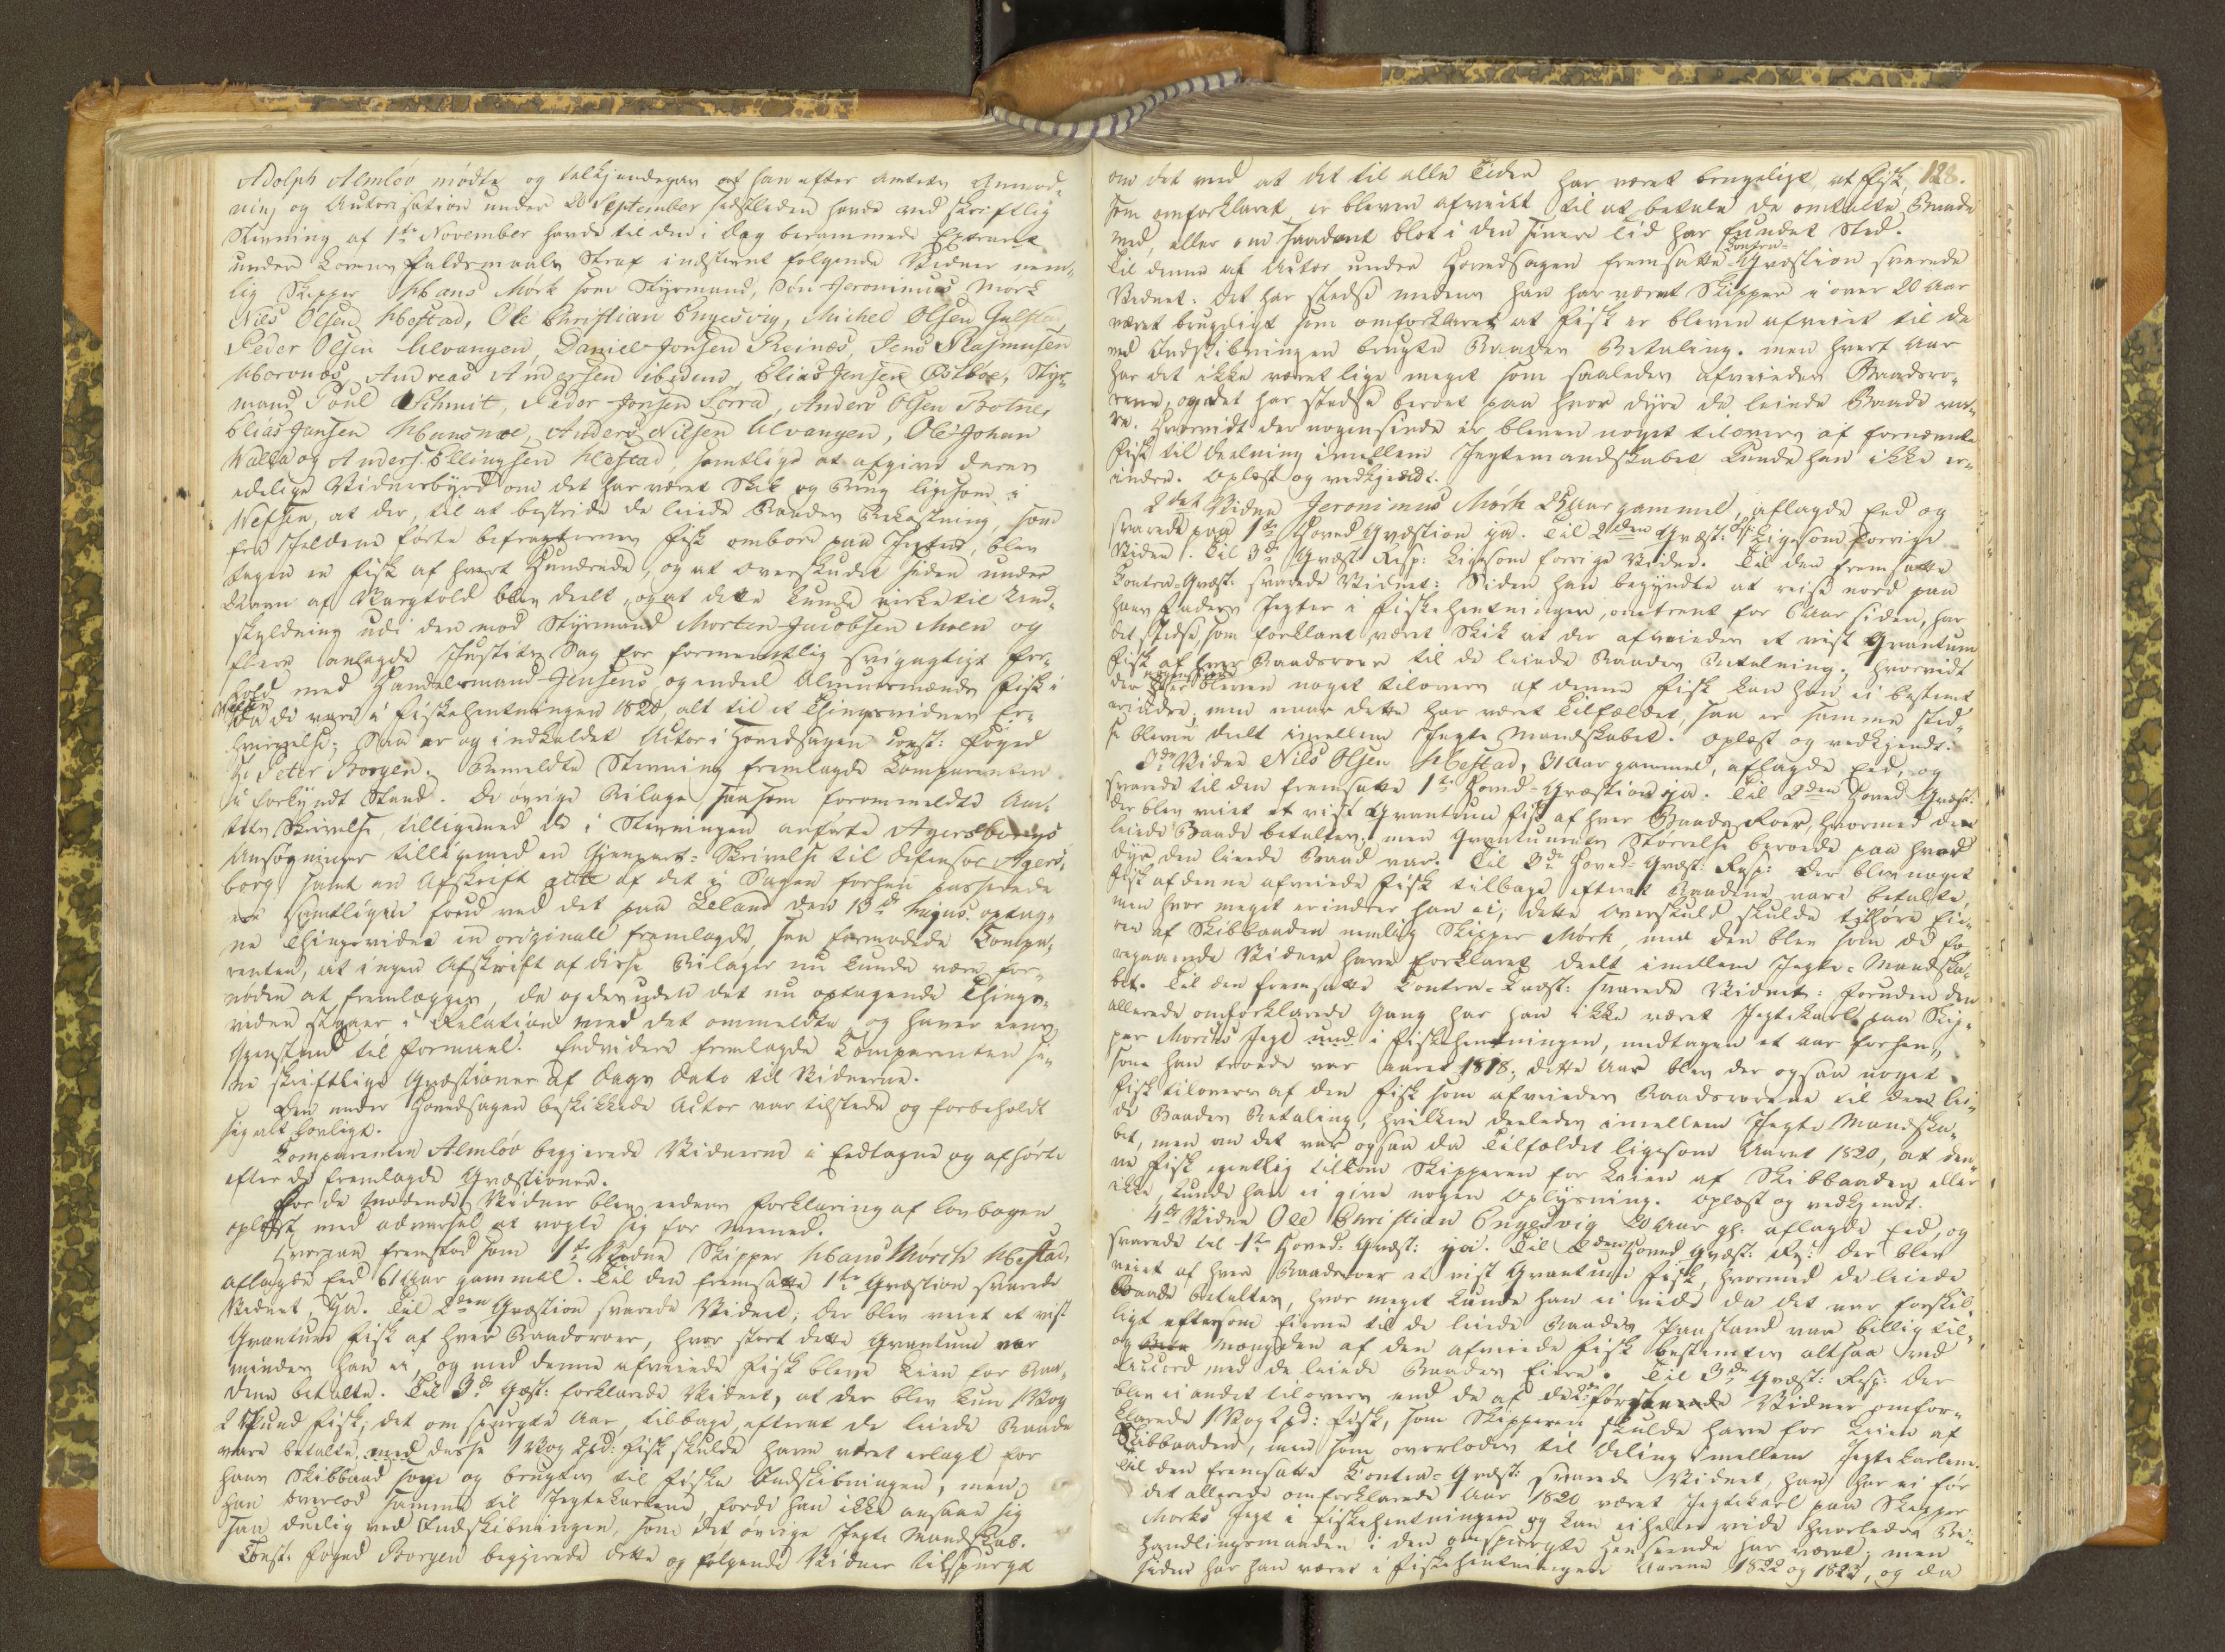 Adolph Almløv mødte og tilkjendegav at han efter Amtets Anmod-
ning og Autorisation under 20 September sidstleden havde med skriftlig
Stevning af 1te November havde til den i Dag berammede Extraret
under Lovens Faldsmaals Straf indstevnt følgende Vidner nem-
lig Skipper Hans Mørk som Styrmand, Søn Jeronimus Mørk
Niels Olsen Hestad, Ole Christian Engesvig, Michel Olsen Gulstad
Peder Olsen Alvangen, Daniel Jonsen Reinæs, Jens Rasmusen
Andreas Andersen ibidem, Elias Jensen Østbøe, Styr-
mand Poul Schmit, Peder Jonsen Sørra, Anders Olsen Botner
Elias Jansen Hansnæs, Anders Nilsen Alvangen, Ole Johan
Walla og Anders Ellingsen Hestad, samtlige at afgive deres
edelige Vidnesbyrd om det har været Skik og Brug ligesom i
Nefsen, at der, til at bestride de leiede Baades Bekostning, som
fra Fjeldene førte befragternes Fisk ombord paa Jegten, blev
tagen en Fisk af hvert Hundrede, og at Overskudet siden under
Navn af Vragtold blev deelt, og at dette kunde virke til Und-
skyldning udi den mod Styrmand Morten Jacobsen Moen og
flere anlagde Justits Sag for formeentlig svigagtigt For-
hold med Handelsmand Jensens og endeel Almuesmænds Fisk i
da de vare i Fiskehentningen 1820, alt til et Thingsvidnes Er-
hvervelse; Saa er og indkaldet Actor i Hovedsagen Const: Foged
Hr Peter Borgen. Bemeldte Stevning fremlagde Comparenten
i forkyndt Stand. De øvrige Bilage saasom forommeldte Am-
tets Skrivelse, tilligemed de i Stevningen anførte Agersborgs
Ansøgninger tilligemed en Gjenpart-Skrivelse til Defensor Agers-
borg samt en Afskrift af det i Sagen forhen passerede
ere samtligen forud ved det paa Leland den 13de hujus optag-
ne Thingsvidne in originali fremlagde, saa formodede Compa-
renten, at ingen Afskrift af disse Bilager nu kunde være for-
nøden at fremlægges, da og desuden det nu optagende Things-
vidne staaer i Relation med det ommeldte og haver eens
Gjenstand til Formaal. Endvidere fremlagde Comparenten si-
ne skriftlige Qvæstioner af Dags Dato til Vidnerne.
Den under Hovedsagen beskikkede Actor var tilstede og forbeholdt
sig alt lovligt.
Comparenten Almløv begjerede Vidnerne i Eedtagne og afhørte
efter de fremlagde Qvæstioner.
For de mødende Vidner blev eedens Forklaring af Lovbogen
oplæst med advarsel at vogte sig for Meened.
Hvorpaa fremstod som 1te Vidne Skipper Hans Mørch Hestad,
aflagde Eed 61 Aar gammel. Til den fremsatte 1te Qvæstion svarede
Vidnet, Ja. Til 2den Qvæstion svarede Vidnet; der blev veiet et vist
Qvantum Fisk af hver Baadsroer, hvor stort dette Qvantum var
mindes han ei, og med denne afveiede Fisk bleve Leien for Baa-
dene betalte. Til 3de Qvæst: forklarede Vidnet, at der blev kun 1 Vog
2 Pund Fisk, det om spurgte Aar, tilbage, efterat de leiede Baade
vare betalte, med disse 1 Vog 2pd: Fisk skulde have været erlagt for
hans Skibbaad som og brugtes til Fiske Indskibningen, men
han overlod samme til Jegtekarlene, fordi han ikke ansaae sig
saa duelig ved Indskibningen, som det øvrige Jegte Mandskab.
Const: Foged Borgen begjerede dette og følgende Vidner tilspurgt
128.
om det med at det til alle Tider har været brugeligt, at Fisk
som omforklaret, er bleven afveiet til at betale de omtalte Baade
med, eller om saadant blot i den senere tid har fundet Sted.
Til denne af Actor under Hovedsagen fremsatte Contra-Qvæstion svarede
Vidnet: det har stedse medens han har været Skipper i over 20 Aar
været brugeligt som omforklaret at Fisk er bleven afveiet til de
ved Indskibningen brugte Baades Betaling. men hvert Aar
har det ikke været lige meget som saaledes afveiedes Baadsro-
erne, og det har stedse beroet paa hvor dyre de leiede Baade va-
re. Hvorvidt der nogensinde er bleven noget tilovers af fornævnte
Fisk til Deeling imellem Jegtemandskabet kunde han ikke er-
indre. Oplæst og vedkjendt.
2det Vidne Jeronimus Mørk 25 Aar gammel, aflagde Eed og
svarede paa 1te Hoved Qvæstion ja. Til 2den Qvæst: Ligesom forrige
Vidne. Til 3de Qvæst: Resp: Ligesom forrige Vidne. Til den fremsatte
Contra-Qvæst: svarede Vidnet: Siden han begyndte at reise nord paa
hans Faders Jegter i Fiskehentningen, omtrent for 6 Aar siden, har
det stedse som forklart været Skik at der afveiedes et vist Qvantum
Fisk af hver Baadsroer til de leiede Baades Betalning; hvorvidt
der nogensinde er bleven noget tilovers af denne Fisk kan han ei bestemt
erindre, men naar dette har været Tilfældet, saa er samme sted-
se bleven deelt imellem Jegte Mandskabet. Oplæst og vedkjendt.
3de Vidne Nils Olsen Hestad, 31 Aar gammel, aflagde Eed, og
svarede til den fremsatte 1te Hoved-Qvæstion ja. Til 2den Hoved-Qvæst:
der blev veiet et vist Qvantum Fisk af hver Baads Roer, hvormed de
leiede Baade betaltes, men Qvantumets Størrelse beroede paa hvor
dyr den leiede Baad var. Til 3de Hoved-Qvæst: Resp: der blev noget
Fisk af denne afveiede Fisk tilbage efterat Baadene vare betalte,
men hvor meget erindrer han ei; dette Overskuld skulde tilhøre Eie-
ren af Skibbaaden nemlig Skipper Mørk, men den blev som de fo-
regaaende Vidner have forklaret deelt imellem Jegte-Mandska-
bet. Til den fremsatte Contra-Qvæst: svarede Vidnet: foruden den
allerede omforklarede Gang har han ikke været Jegtekarl paa Skip-
per Mørks Jegt i Fiskehentningen, undtagen et Aar forhen,
som han troede var aaret 1818; dette Aar blev der ogsaa noget
Fisk tilovers af den Fisk som afveiedes Baadsroerne til de lei-
de Baades Betaling, hvilken deeledes imellem Jegte Mandska-
bet, men om det var ogsaa da Tilfældet ligesom Aaret 1820, at den-
ne Fisk egentlig tilkom Skipperen for Leien af Skibbaaden eller
ikke, kunde han ei give nogen Oplysning. Oplæst og vedkjendt.
4de Vidne Ole Christian Engesvig 20 Aar gl. aflagde Eed, og
svarede til 1te Hoved-Qvæst: ja. Til 2den Hoved Qvæst: Rsp: der blev
veiet af hver Baadsroer et vist Qvantum Fisk, hvormed de leiede
Baade betaltes, hvor meget kunde han ei vide da det var forskjel-
ligt eftersom Eierne til de leiede Baades Paastand var billig til-
og mængden af den afveiede Fisk bestemtes altsaa ved
Accord med de leiede Baades Eiere. Til 3de Qvæst: Resp: der
blev ei andet tilovers end de af de 2de første Vidner omfor-
klarede 1 Vog 2pd: Fisk, som Skipperen skulde have for Leien af
Skibbaaden, men som overlodes til Deling imellem Jegtekarlene.
Til den fremsatte Contra-Qvæst: svarede Vidnet, han har ei før
det allerede omforklarede Aar 1820 været Jegtekarl paa Skipper
Mørks Jegt i Fiskehentningen og kan ei heller vide hvorledes Be-
handlingsmaaden i den omspurgte Henseende har været; men
siden har han været i Fiskehentningen Aarene 1822 og 1823, og da